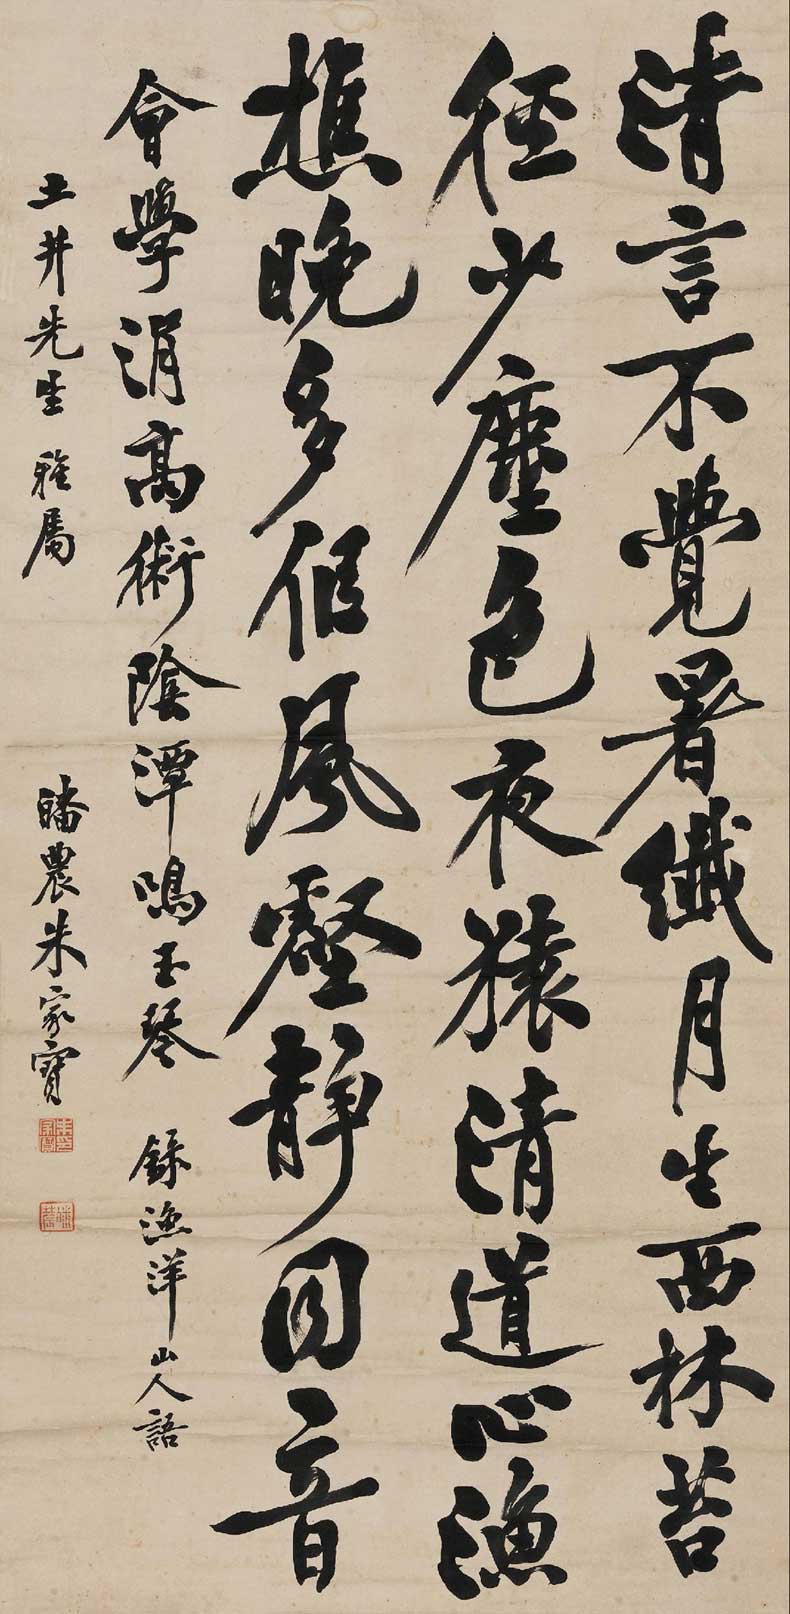 清言不覺暑纖月生西林苔
徑少塵色夜猿清道心漁
樵晚多侶風壑靜囘音
會學涓高術陰潭鳴玉琴 錄漁洋山人語
土井先生 雅屬 皤農朱家寶